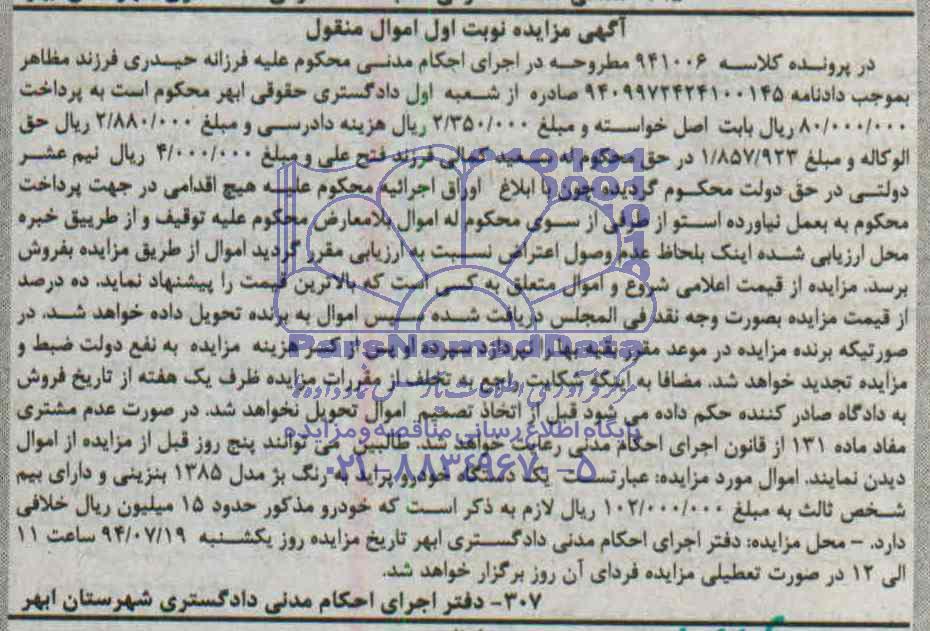 آگهی مزایده نوبت اول اموال منقول
در پرونده کلاسه ۹۴۱۰۰۶ مطروحه در اجرای احکام مدنی محکوم علیه فرزانه حیدری فرزند مظاهر
بموجب دادنامه ۹۴۰۹۹۷۲۴۲۴۱۰۰۱۴۵ صادره از شعبه اول دادگستری حقوقی ابهر محکوم است به پرداخت
۸۰/۰۰۰/۰۰۰ ریال بابت اصل خواسته و مبلغ ۲/۳۵۰/۰۰۰ ریال هزینه دادرسی و مبلغ ۲/۸۸۰/۰۰۰ ریال حق
الوکاله و مبلغ ۱/۸۵۷/۹۲۳ در حق محکوم له سعید کمالی فرزند فتح علی و مبلغ ۴/۰۰۰/۰۰۰ ریال نیم عشر
دولتی در حق دولت محکوم گردیده چون با ابلاغ اوراق اجرائیه محکوم علیه هیچ اقدامی در جهت پرداخت
محکوم به بعمل نیاورده استو از طرفی از سوی محکوم له اموال بلامعارض محکوم علیه توقیف و از طرییق خبره
محل ارزیابی شده اینک بلحاظ عدم وصول اعتراض نسبت به ارزیابی مقرر گردید اموال از طریق مزایده بفروش
برسد. مزایده از قیمت اعلامی شروع و اموال متعلق به کسی است که بالاترین قیمت را پیشنهاد نماید. ده درصد
از قیمت مزایده بصورت وجه نقد فی المجلس دریافت شده سپس اموال به برنده تحویل داده خواهد شد. در
صورتیکه برنده مزایده در موعد مقرر بقیه بها را نپردازد سپرده او پس از کسر هزینه مزایده به نفع دولت ضبط و
مزایده تجدید خواهد شد. مضافا به اینکه شکایت راجع به تخلف از مقررات مزایده ظرف یک هفته از تاریخ فروش
به دادگاه صادر کننده حکم داده می شود قبل از اتخاذ تصمیم اموال تحویل نخواهد شد. در صورت عدم مشتری
مفاد ماده ۱۳۱ از قانون اجرای احکام مدنی رعایت خواهد شد. طالبین می توانند پنج روز قبل از مزایده از اموال
دیدن نمایند. اموال مورد مزایده: عبارتست یک دستگاه خودرو پراید به رنگ بژ مدل ۱۳۸۵ بنزینی و دارای بیم
شخص ثالث به مبلغ ۱۰۲/۰۰۰/۰۰۰ ریال لازم به ذکر است که خودرو مذکور حدود ۱۵ میلیون ریال خلافی
دارد. - محل مزایده: دفتر اجرای احکام مدنی دادگستری ابهر تاریخ مزایده روز یکشنبه ۹۴/۰۷/۱۹ ساعت ۱۱
الی ۱۲ در صورت تعطیلی مزایده فردای آن روز برگزار خواهد شد.
۳۰۷- دفتر اجرای احکام مدنی دادگستری شهرستان ابهر
ParsNamadData
پایگاه اطلاع رسانی مناقصه و مزایده
۰۲۱-۸۸۳۴۹۶۷۰-۵